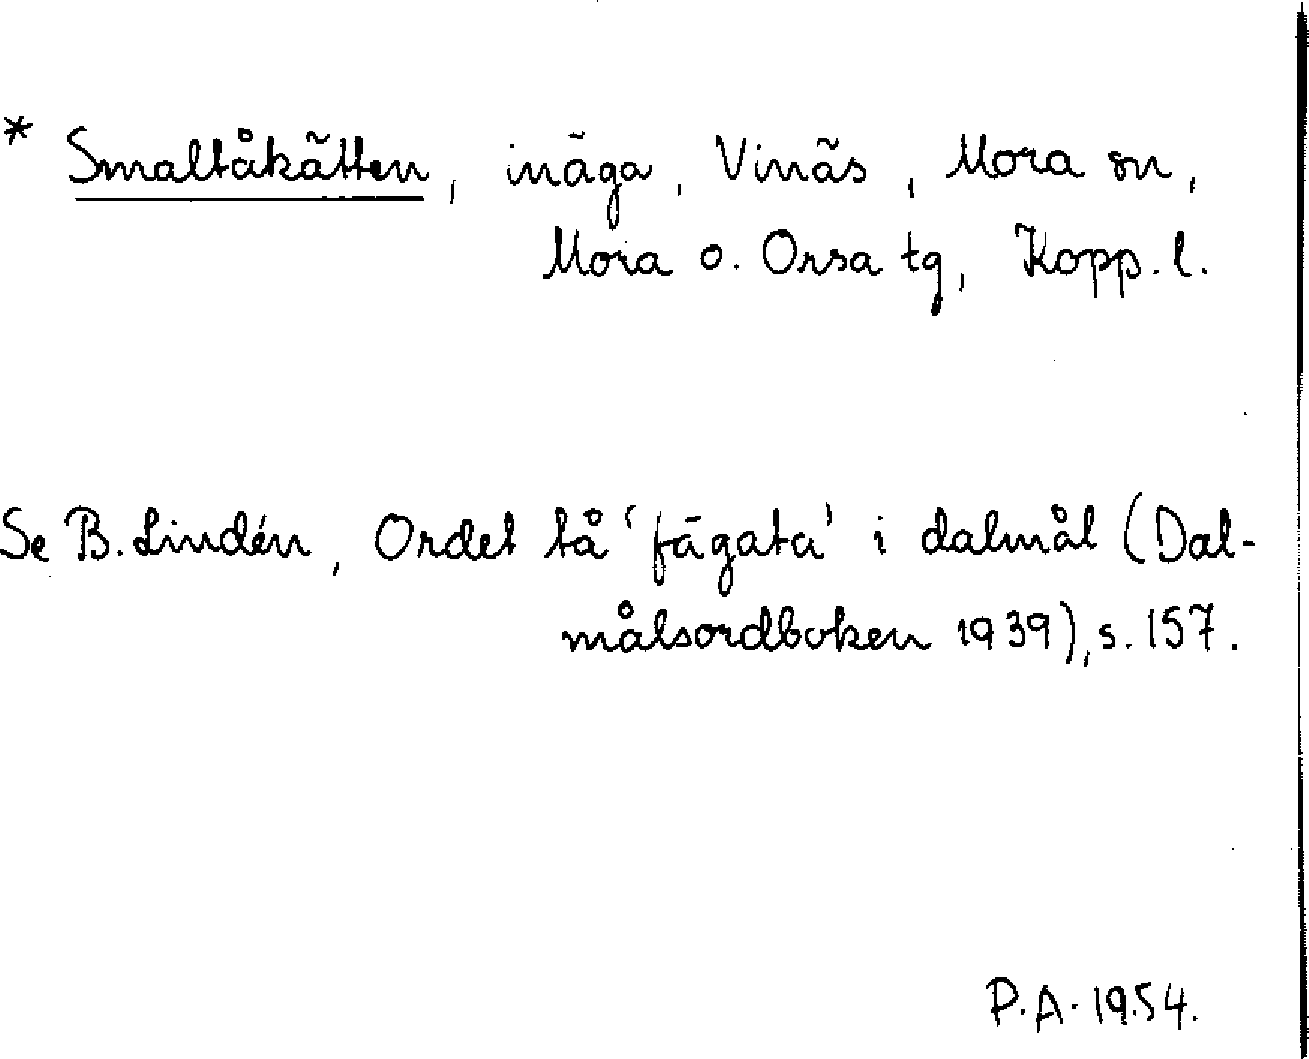 * Smaltåkätten, inäga, Vinäs, Mora sn,
Mora o. Orsa tg, Kopp. l.
Se B. Lindén, Ordet tå 'fägata' i dalmål (Dal-
målsordboken 1939), s. 157.
P.A. 1954.